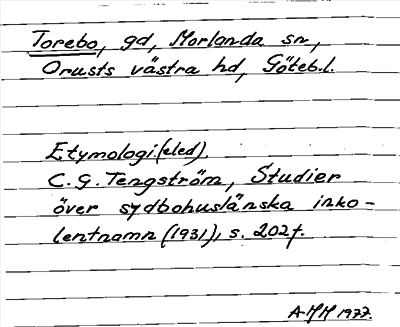 Torebo, gd, Morlanda sn,
Orusts västra hd, Göteb.l.
Etymologi (eled).
C. G. Tengström, Studier
över sydbohuslänska inko-
lentnamn (1931), s. 202f.
A-MH 1977.